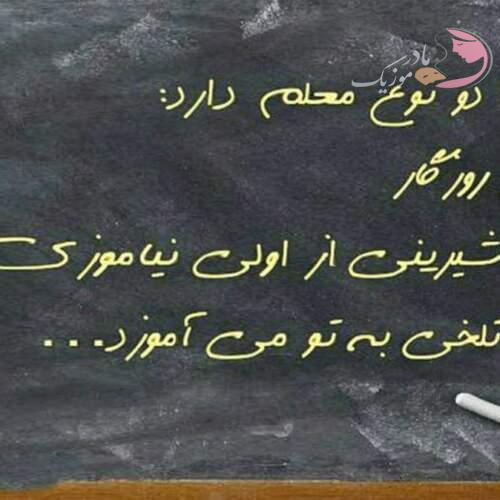 مادر
موزیک
دو نوع معلم دارد:
روزگار
شیرینی از اولی نیاموزی
تلخی به تو می آموزد...